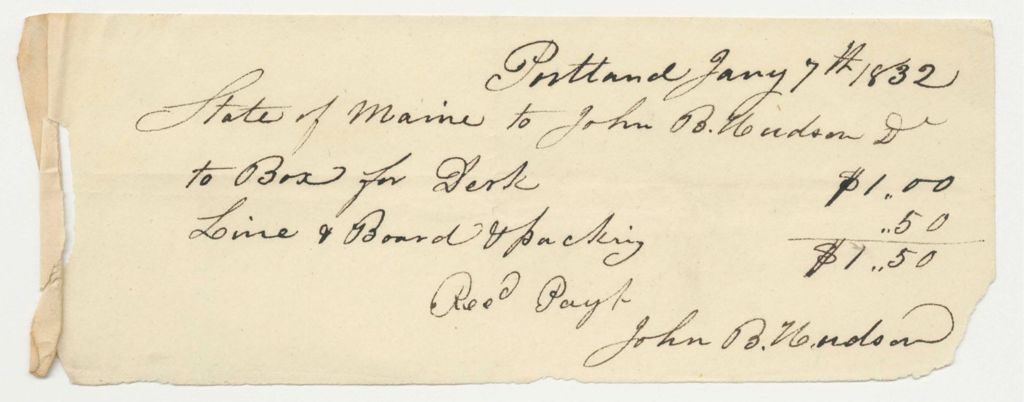 Portland Jany 7th 1832
State of Maine to John B. Hudson Dr
to Box for Desk $1.00
Line & Board & packing ..50
$1..50
Recd Payt
John B. Hudson